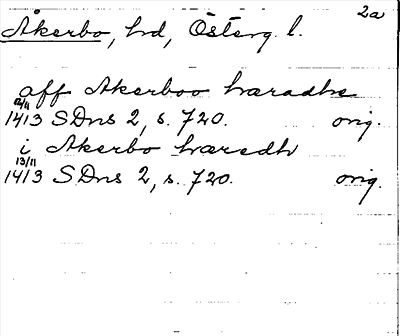 2a
Åkerbo, hd, Österg. l.
aff Akerboo hæradhe
12/11
1413 SDns 2, s. 720. orig.
i Akerbo hæredh
13/11
1413 SDns 2, s. 720. orig.